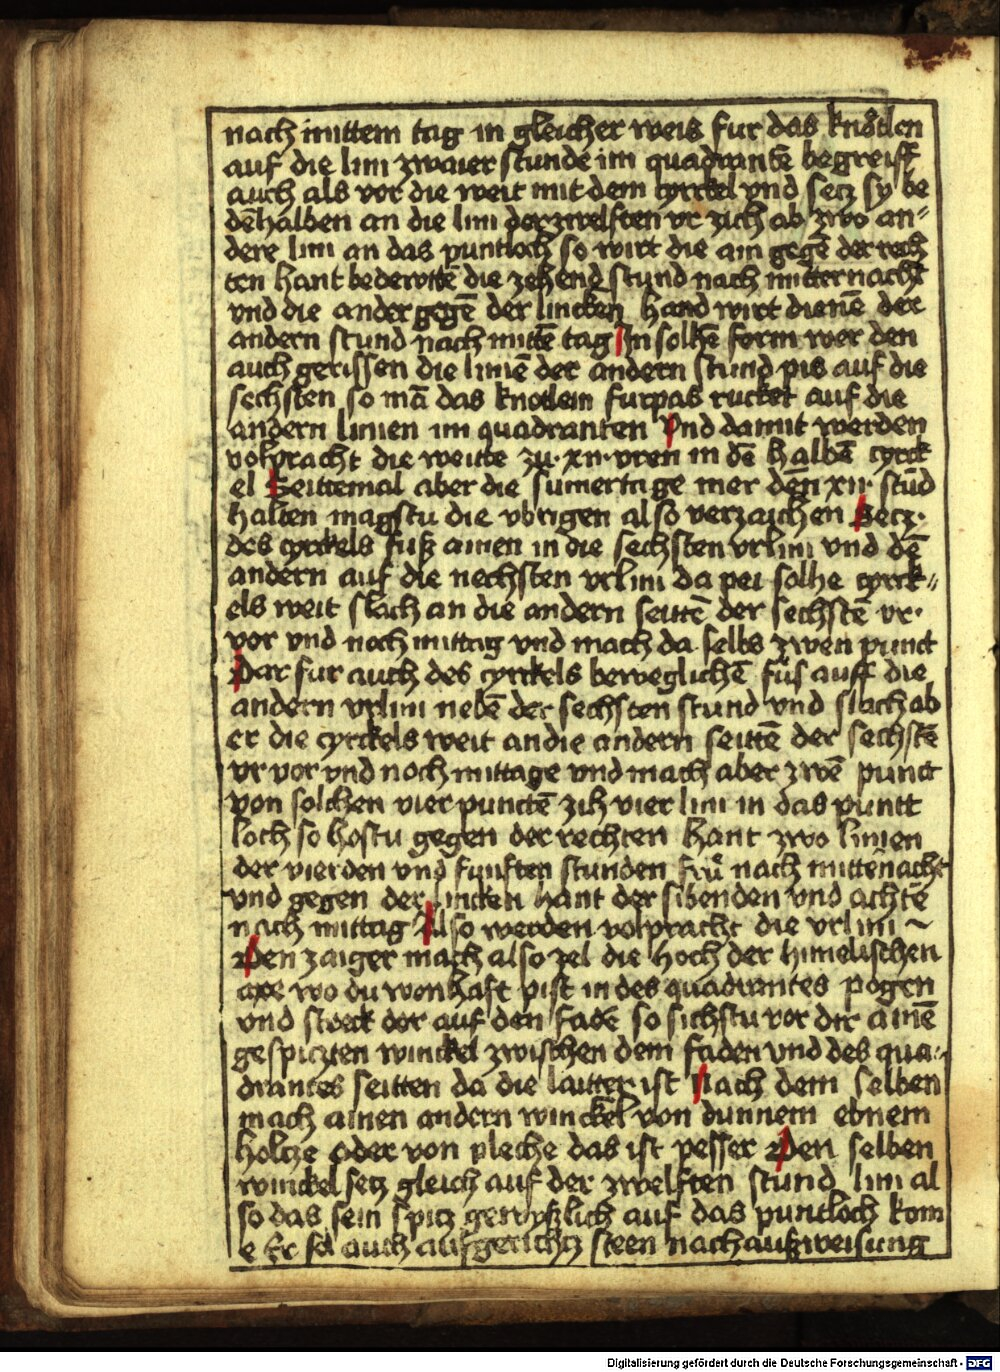 nach mittem tag in gleicher weis fur das knötlen
auf die lini zwaier stunde im quadrantē begreiff
auch als vor die weit mit dem cyrckel vnd setz sy be
dēhalben an die lini der zwelften vr zich ab zwo an-
dere lini an das puntloch so wirt die ain gegē der rech
ten hant bedewttē die zehend stund nach mitternacht
vnd die ander gegē der lincken hand wirt dienē der
andern stund nach mittē tag In solhē form wer den
auch gerissen die liniē der andern stund pis auf die
sechsten so mā das knotlein furpas rucket auf die
andern linien im quadranten Vnd damit werden
volpracht die weitte zu · xii · vren in dē halbē cyrck
el Seittemal aber die sumertage mer dēn xii stūd
halten magstu die vbrigen also verzaichen Setz ·
des cyrckels fuß ainen in die sechsten vrlini vnd dē
andern auf die nechsten vrlini da pei solhe cyrck-
els weit slach an die andern seittē der sechstē vr ·
vor vnd noch mittag vnd mach da selbs zwen punct
Dar fur auch des cyrckels beweglichē fůs auff die
andern vrlini nebē der sechsten stund vnd slach ab
er die cyrckels weit an die andern seittē der sechstē
vr vor vnd noch mittage vnd mach aber zwē punct
von solchen vier punctē zih vier lini in das puntt
loch so hostu gegen der rechten hant zwo linien
der vierden vnd funften stunden frů nach mittēnacht
vnd gegen der lincken hant der sibenden vnd achtē
nach mittag Also werden volpracht die vrlini ~
Den zaiger mach also zel die hoch der himelischen
axe wo du wonhaft pist in des quadrantes pogen
vnd steck dor auf den fadē so sichstu vor dir ainē
gespiczten winckel zwischen dem faden vnd des qua-
drantes seitten da die laitter ist Nach dem selben
mach ainen andern winckel von dunnem ebnem
holcze oder von pleche das ist pesser Den selben
winckel setz gleich auf der zwelften stund lini al
so das sein spicz gewyßlich auf das puntloch kom
e Er sol auch aufgerichtz steen nach außweisung